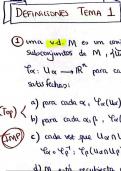 DEFINICIONES TEMA 1
① Una v.d. M es un con
subconjuntos de M, {(U
φα: Uα → ℝⁿ para ca
satisfechas:
(Top)
a) para cada α, φα(Uα)
b) para cada α,
(IMP)
c) cada vez que Uα∩U
: φα(Uα∩U
d) M está recubierta